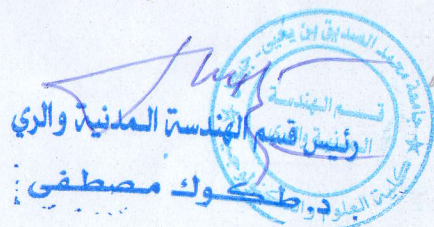 جامعة محمد الصديق بن يحيى
قسم الهندسة
المدنية والري
كلية العلوم و
رئيس قسم الهندسة المدنية والري
د. طكوك مصطفى